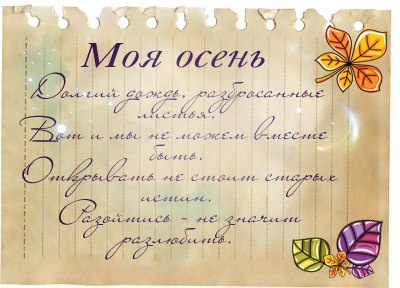 Моя осень
Долгий дождь, разбросанные
листья.
Вот и мы не можем вместе
быть.
Открывать не стоит старых
истин.
Разойтись - не значит
разлюбить.